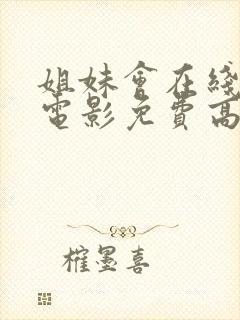 姐妹會在綫
電影免費高
榷墨喜